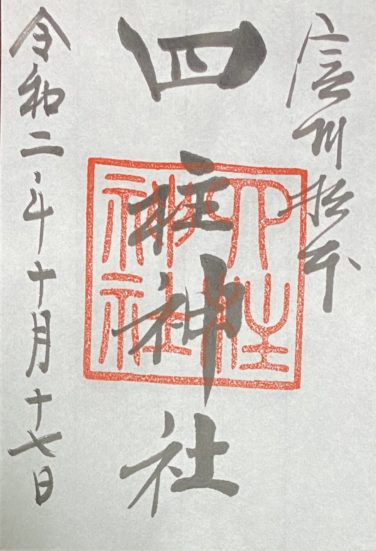 信州松本
四柱神社
四柱神社
令和二年十月十七日